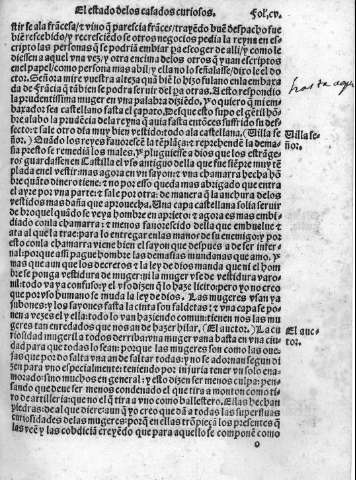 El estado delos casados curiosos. Fol. cv.
stir se ala frãcesa/ t vino q̃ parescia frãces/ trayẽdo buẽ despacho fue
biẽ rescebido/ y recresciẽdose otros negocios pedia la reyna en es
cripto las personas q̃ se podriã embiar pa escoger de alli/ y como le
diesen a aquel vna vez/ y otra encima delos otros q̃ yuan escriptos
en el papel/ como persona mas abil/ y ella no lo señalasse/ dixo le el do
ctor. Señora mire vuestra alteza quã biẽ lo hizo fulano enla embaxa
da de Frãcia q̃ tãbien se podra seruir del pa otras. A esto respondio
la prudentissima muger en vna palabra diziẽdo. Yo quiero q̃ mi em
baxador sea castellano fasta el çapato. Desque esto supo el gẽtil hõ
bre alabo la pruẽcia dela reyna q̃ auia fasta entõces suffrido su des
fecto: t sale otro dia muy bien vestido: todo ala castellana. (Villa se
ñor.) Quando los reyes fauorescẽ la tẽplãça: t reprehendẽ la dema
sia presto se remediã los males. y pluguiesse a dios que los estrãge
ros guardassen en Castilla el vso antiguo della que fue siẽpre muy tẽ
plada enel vestir: mas agora en vn sayon: t vna chamarra hecha hõ
bre quãto dinero tiene: t no por esso queda mas abrigado que entra
el ayre por vna parte: t sale por otra: de manera q̃ la anchura delos
vestidos mas daña que aprouecha. Una capa castellana solia seruir
de broquel quãdo se veya hombre en aprieto: t agora es mas embi
diado conla chamarra: t menos fauorescido della que embuelue t
ata al que la trae: para lo entregar en las manos de su enemigo: y por
esto conla chamarra viene bien el sayon que despues a de ser infer
nal: porque assi pague hombre las demasias mundanas que amo. y
mas que aun que los decretos t la ley de dios manda que ni el hom
bre se ponga vestidura de muger: ni la muger vse de vestidura varo
nil: todo va ya confuso: y el vso dizen q̃ lo haze licito: pero yo no creo
que por vso humano se muda la ley de dios. Las mugeres vsan ya
jubones: y los sayones fasta la cinta son faldetas: t vna capa se po
nen a vezes el y ella: todo lo van haziendo comun: t tienen nos las mu
geres tan enredados que nos an de hazer hilar. (El auctor.) La cu
riosidad mugeril a todos derriba: vna muger vana basta en vna ciu
dad para que todas lo sean: porque las mugeres son como las oue
jas que por do salta vna an de saltar todas: y no se adornan segun di
zen para vno especialmente: teniendo por injuria tener vn solo ena
morado: sino muchos en general: y esto dizen ser menos culpa: pen
sando que deue ser menos condenado el que tira a monton como ti
ro de artilleria: que no el q̃ tira a vno como ballestero. Ellas hechan
piedras: de al que diere: aun q̃ yo creo que dã a todas las superfluas
curiosidades delas mugeres: porq̃ en ellas trõpieçã los presentes q̃
las veẽ y las cobdiciã creyẽdo que para aquello se componẽ como
o
hasta aqui
Villa se
ñor.
El auc
tor.